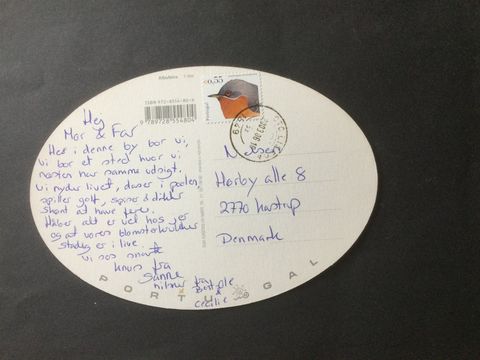 Albufeira
ISBN 972-8554-80-9
9 789728 554804
€0,55
Portugal
Hej
Mor & Far
Her i denne by bor vi,
vi bor et sted hvor vi
næsten har samme udsigt.
Vi nyder livet, daser i poolen
spiller golf, spiser & drikker
skønt at have ferie.
Håber alt er vel hos jer
og at vores blomsterkrukker
stadig er i live.
Vi ses snart
knus fra
Sanne
hilsner fra
Bent Ole
& Cecilie
Nielsen
Hørby alle 8
2770 Kastrup
Denmark
PORTUGAL